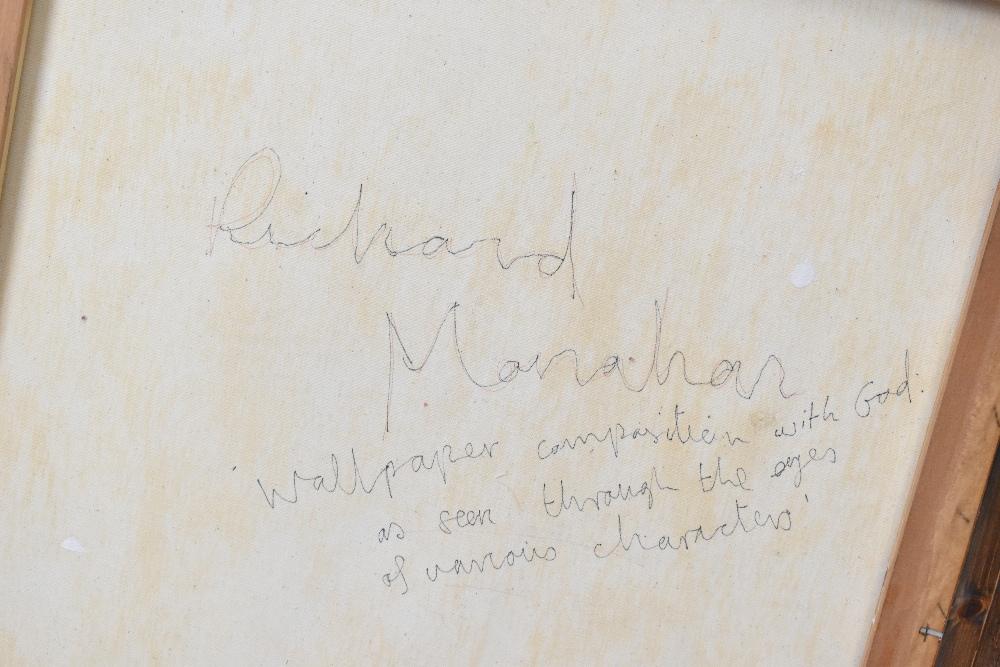 Richard
Monahan
'Wallpaper composition with God:
as seen through the eyes
of various characters'